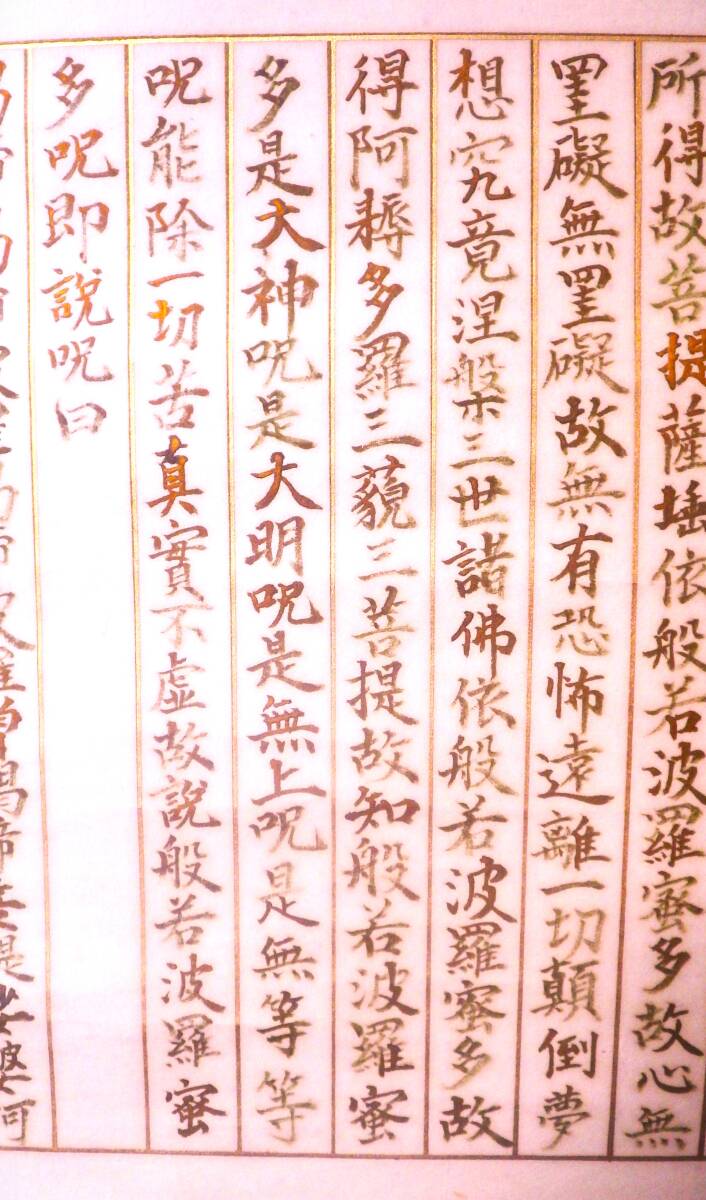 所得故菩提薩埵依般若波羅蜜多故心無
罣礙無罣礙故無有恐怖遠離一切顛倒夢
想究竟涅槃三世諸佛依般若波羅蜜多故
得阿耨多羅三藐三菩提故知般若波羅蜜
多是大神呪是大明呪是無上呪是無等等
呪能除一切苦真實不虛故說般若波羅蜜
多呪即說呪曰